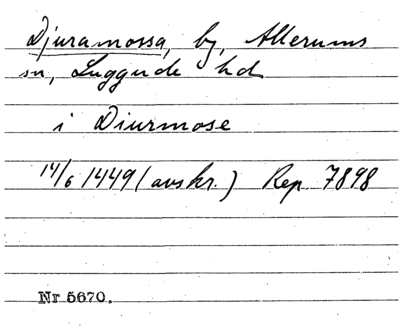 Djuramossa, by, Allerums
sn, Luggude hd
i Diurmose
14/6 1449 (avskr.) Rep 7898
Nr 5670.